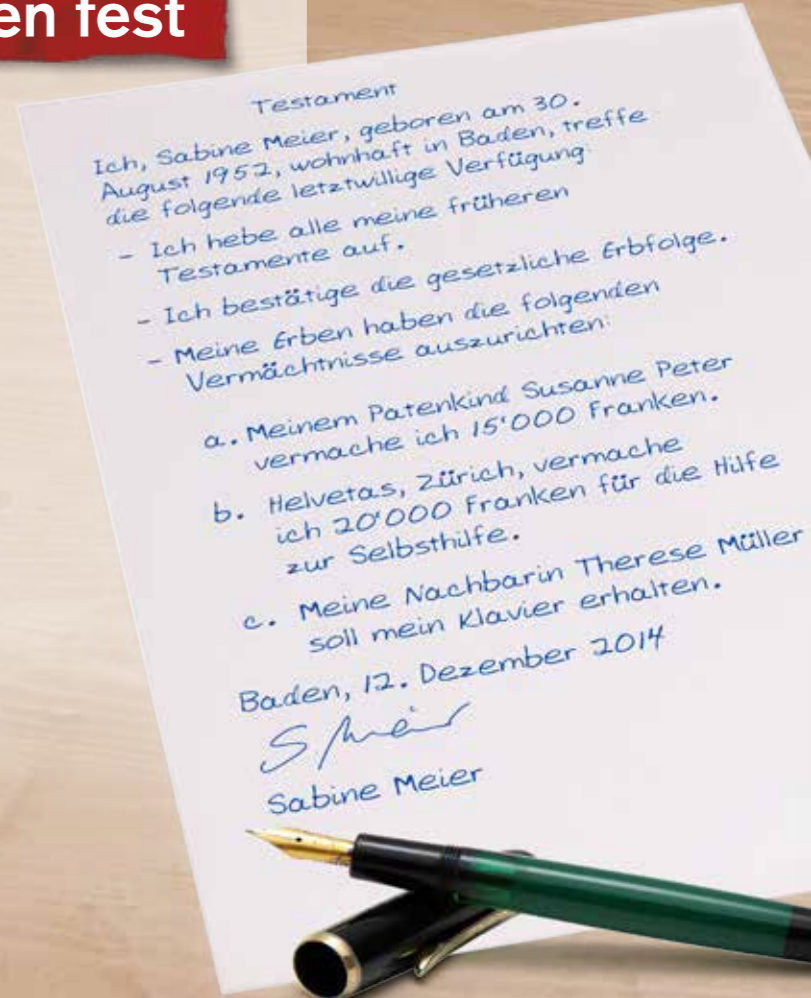 en fest
Testament
Ich, Sabine Meier, geboren am 30.
August 1952, wohnhaft in Baden, treffe
die folgende letztwillige Verfügung:
- Ich hebe alle meine früheren
Testamente auf.
- Ich bestätige die gesetzliche Erbfolge.
- Meine Erben haben die folgenden
Vermächtnisse auszurichten:
a. Meinem Patenkind Susanne Peter
vermache ich 15'000 Franken.
b. Helvetas, Zürich, vermache
ich 20'000 Franken für die Hilfe
zur Selbsthilfe.
c. Meine Nachbarin Therese Müller
soll mein Klavier erhalten.
Baden, 12. Dezember 2014
S. Meier
Sabine Meier